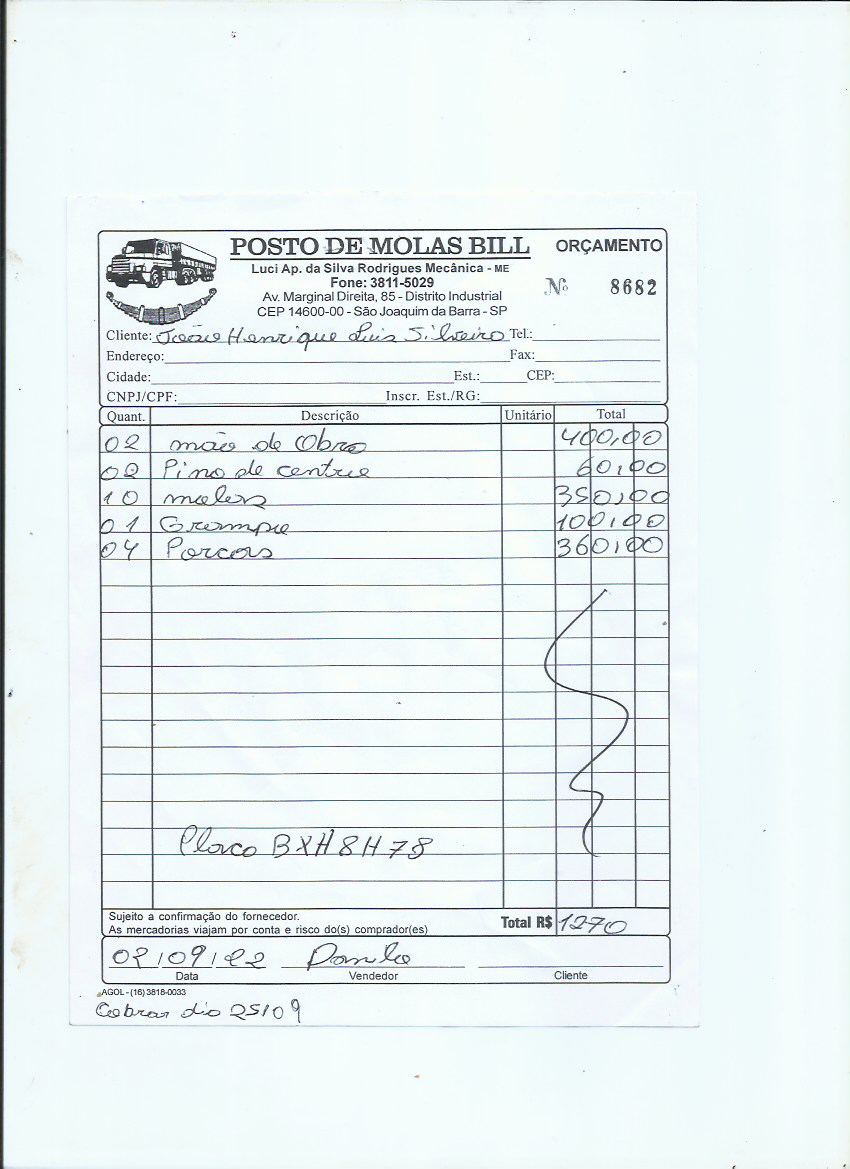 POSTO DE MOLAS BILL
ORÇAMENTO
Luci Ap. da Silva Rodrigues Mecânica - ME
Fone: 3811-5029
Nº 8682
Av. Marginal Direita, 85 - Distrito Industrial
CEP 14600-00 - São Joaquim da Barra - SP
Cliente: João Henrique Luis Silveiro Tel.:
Endereço: Fax:
Cidade: Est.: CEP:
CNPJ/CPF: Inscr. Est./RG:
Quant. Descrição Unitário Total
02 mão de Obra 400,00
02 Pino de centro 60,00
10 molas 350,00
01 Grampo 100,00
04 Porcas 360,00
Placa BXH8H78
Sujeito a confirmação do fornecedor.
As mercadorias viajam por conta e risco do(s) comprador(es)
Total R$ 1270
02/09/22 Danilo
Data Vendedor Cliente
AGOL - (16) 3818-0033
Cobrar dia 25/09